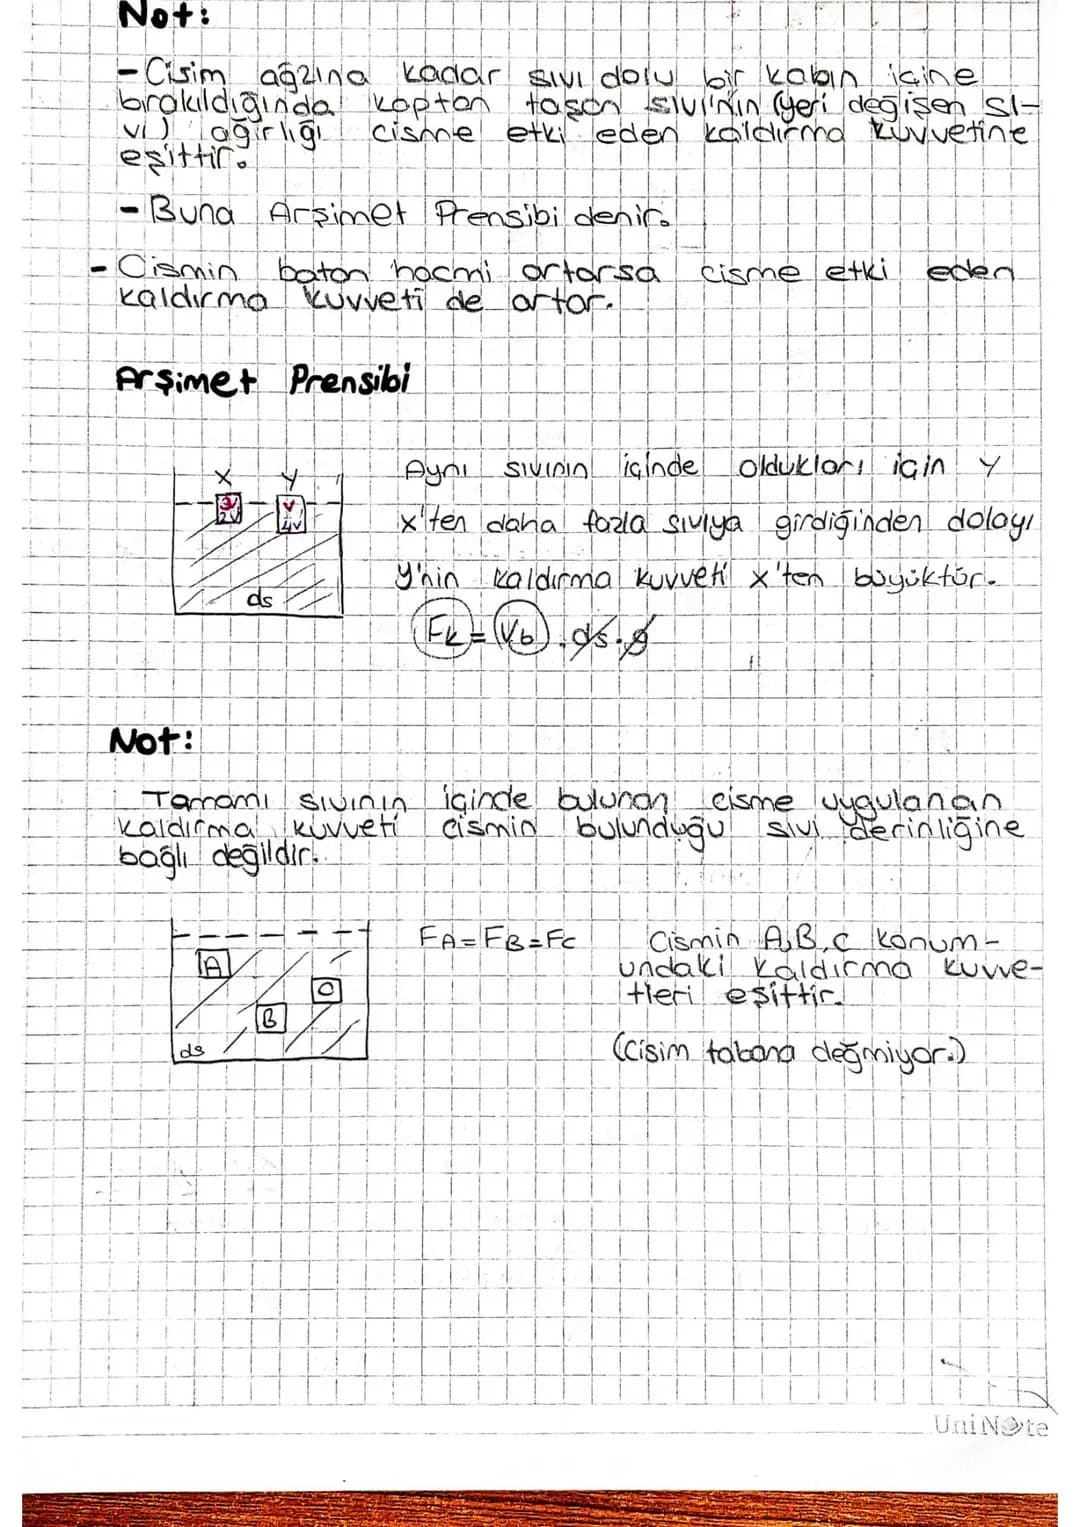 Not:
- Cisim ağzına kadar sıvı dolu bir kabın içine
bırakıldığında kaptan taşan sıvı'nın (yeri değişen sı-
vı) ağırlığı cisme etki eden kaldırma kuvvetine
eşittir.
- Buna Arşimet Prensibi denir.
- Cismin batan hacmi artarsa cisme etki eden
kaldırma kuvveti de artar.
Arşimet Prensibi
X Y
3V V
2V 4V
ds
Aynı sıvının içinde oldukları için Y
x'ten daha fazla sıvıya girdiğinden dolayı
y'nin kaldırma kuvveti x'ten büyüktür.
Fk = Vb . ds . g
Not:
Tamamı sıvının içinde bulunan cisme uygulanan
kaldırma kuvveti cismin bulunduğu sıvı derinliğine
bağlı değildir.
A
B
C
ds
FA = FB = FC
Cismin A,B,C konum-
undaki kaldırma kuvve-
tleri eşittir.
(Cisim tabana değmiyor.)
UniNote